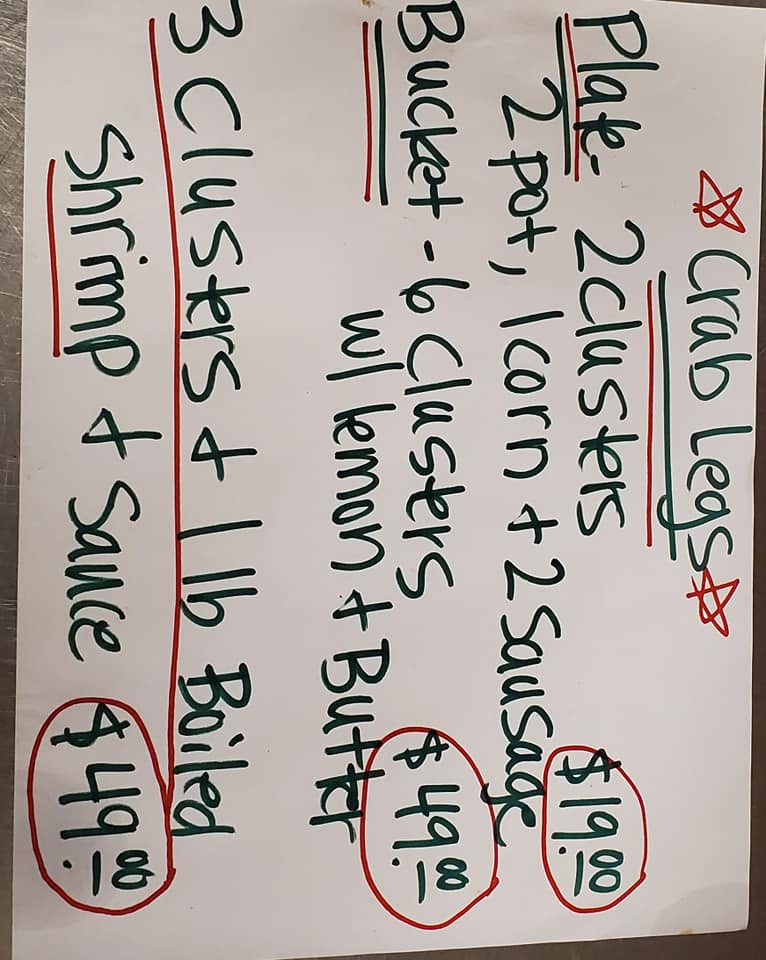 ☆ Crab Legs ☆
Plate - 2 clusters
2 pot, 1 corn + 2 Sausage $19.00
Bucket - 6 Clusters $49.00
w/ lemon + Butter
3 Clusters + 1 lb Boiled
Shrimp + Sauce $49.00